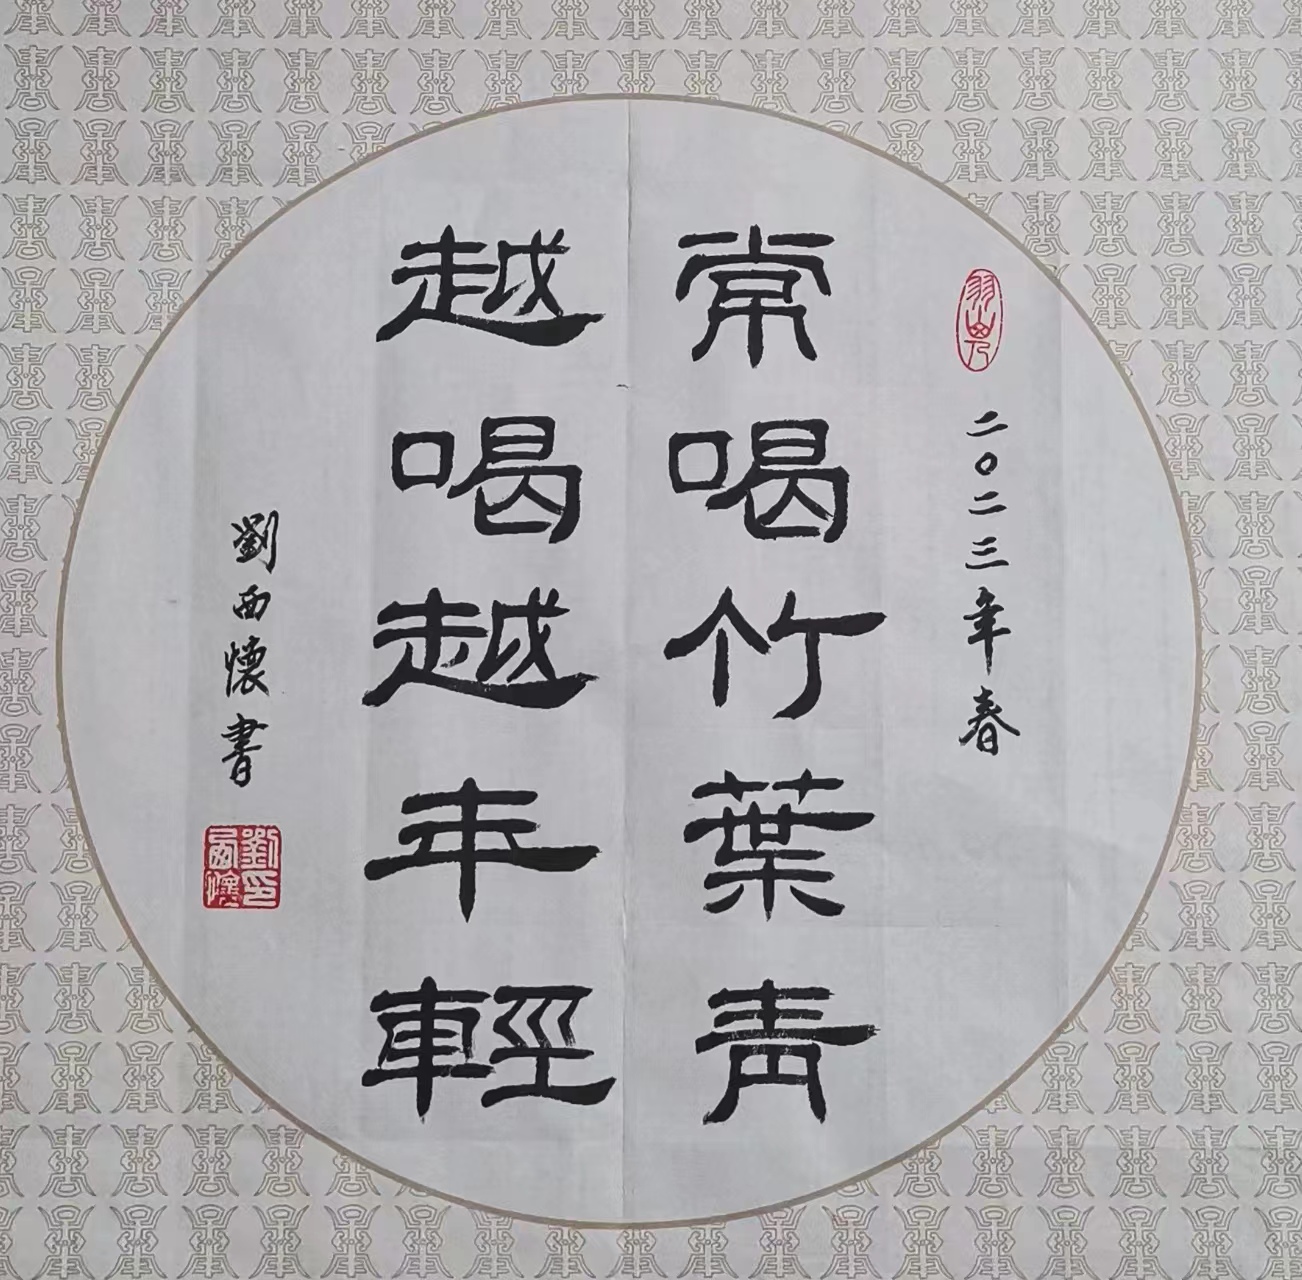 二〇二三年春
常喝竹葉青
越喝越年輕
劉西懷書
劉印西懷